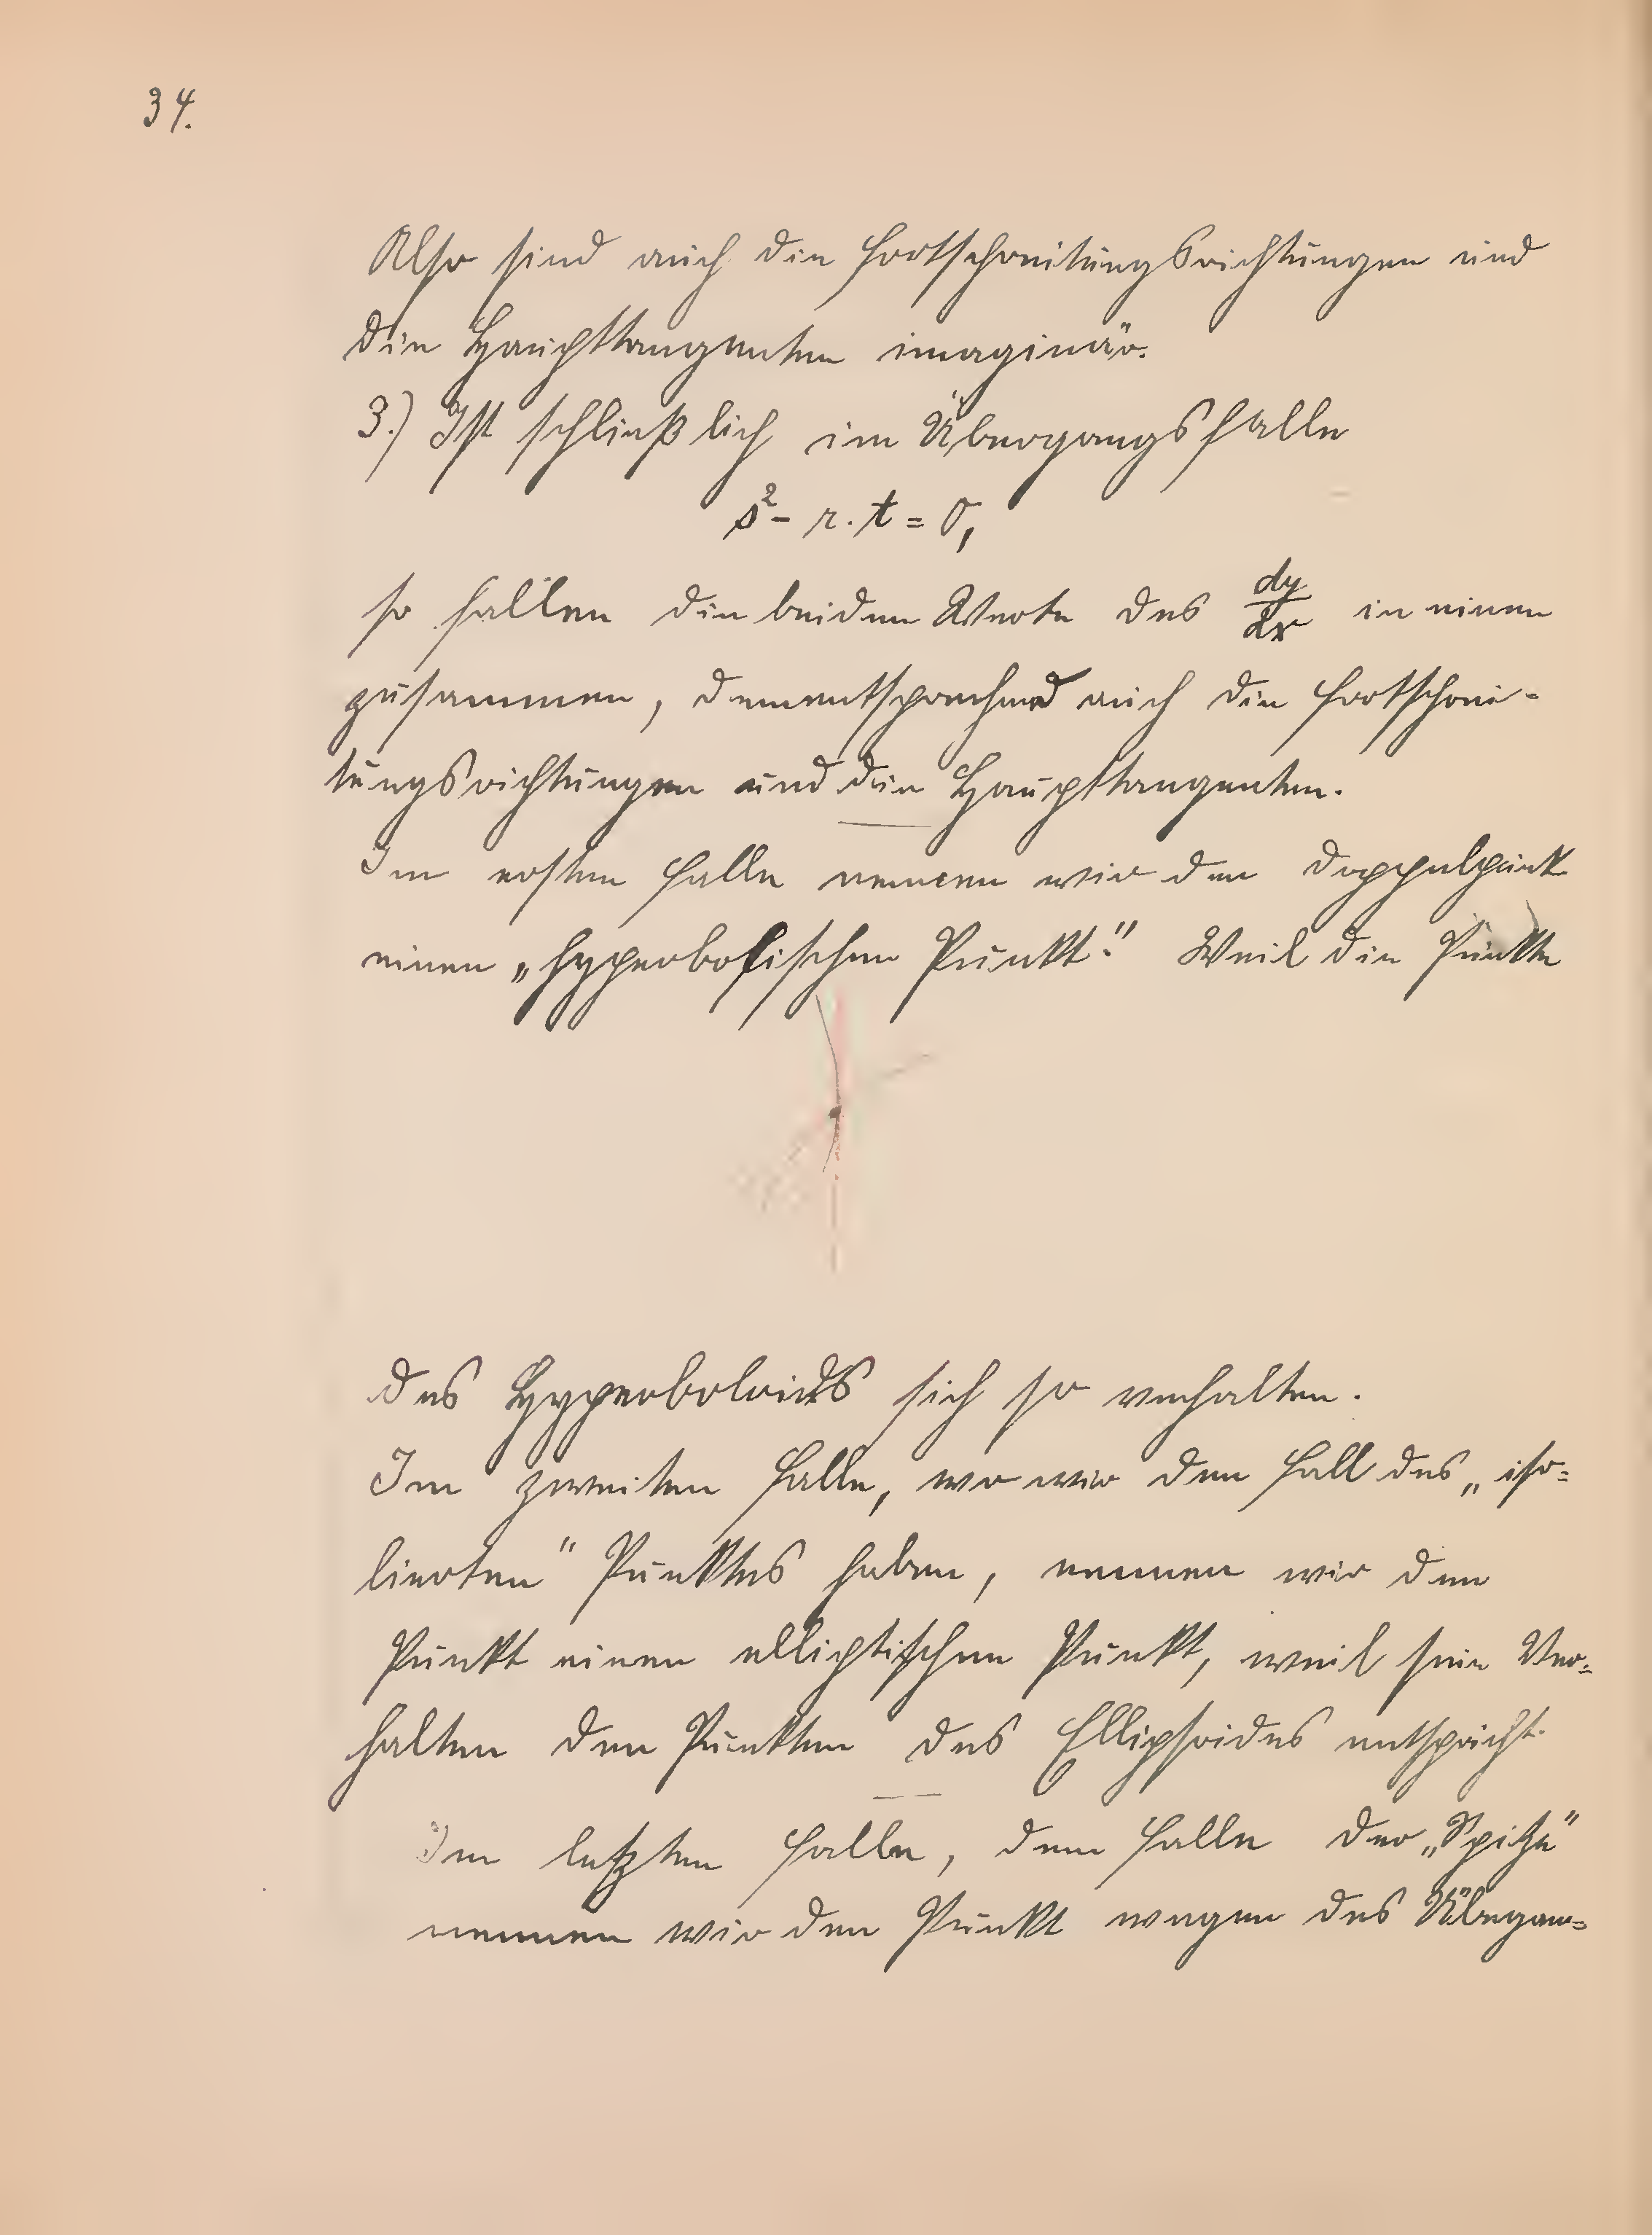 34.
Also sind auch die Fortschreitungsrichtungen und
die Haupttangenten imaginär.
3.) Ist schließlich im Übergangsfalle
s² - r. t = 0,
so fallen die beiden Werte des dy/dx in einen
zusammen, dementsprechend auch die Fortschrei-
tungsrichtungen und die Haupttangenten.
Im ersten Falle nennen wir den Doppelpunkt
einen „hyperbolischen Punkt." Weil die Punkte
des Hyperboloids sich so verhalten.
Im zweiten Falle, wo wir den Fall des „iso=
lierten" Punktes haben, nennen wir den
Punkt einen elliptischen Punkt, weil sein Ver=
halten den Punkten des Ellipsoides entspricht.
Im letzten Falle, dem Falle der „Spitze"
nennen wir den Punkt wegen des Übergan=